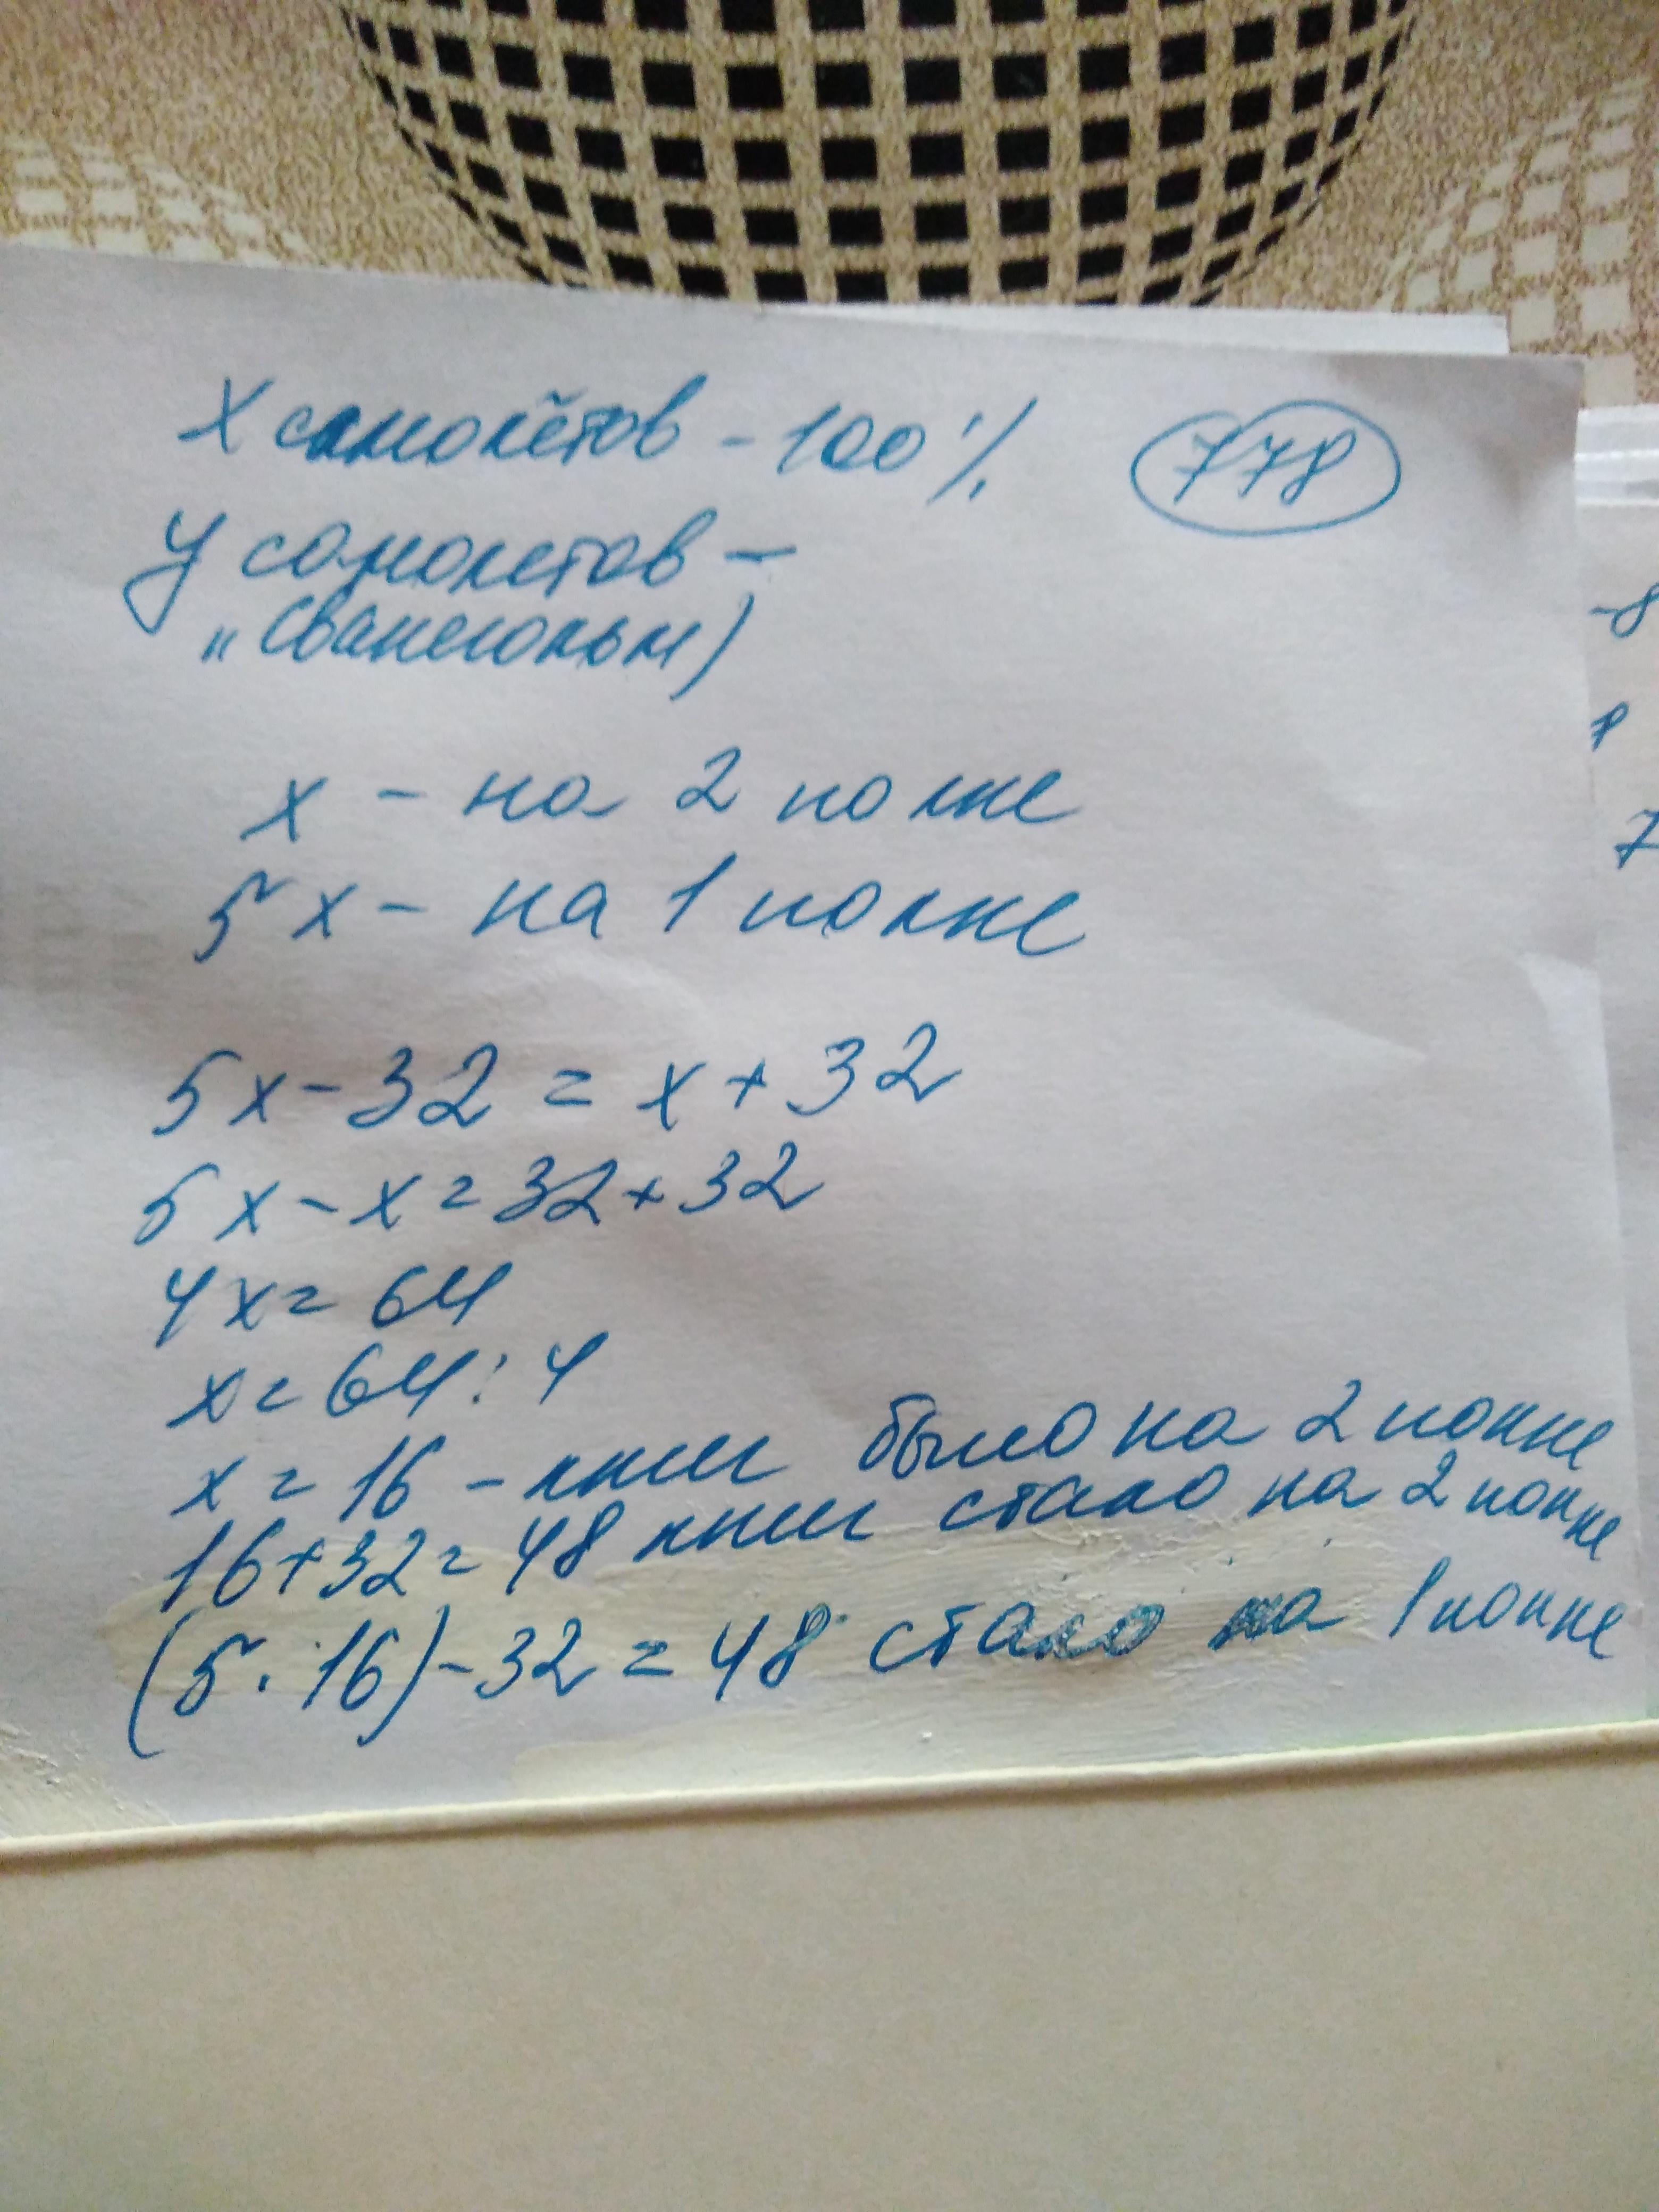 X самолётов - 100 %
778
У самолетов -
x - на 2 полке
5x - на 1 полке
5x - 32 = x + 32
5x - x = 32 + 32
4x = 64
x = 64 : 4
x = 16 - книг было на 2 полке
16 + 32 = 48 книг стало на 2 полке
(5 · 16) - 32 = 48 стало на 1 полке
-8
7